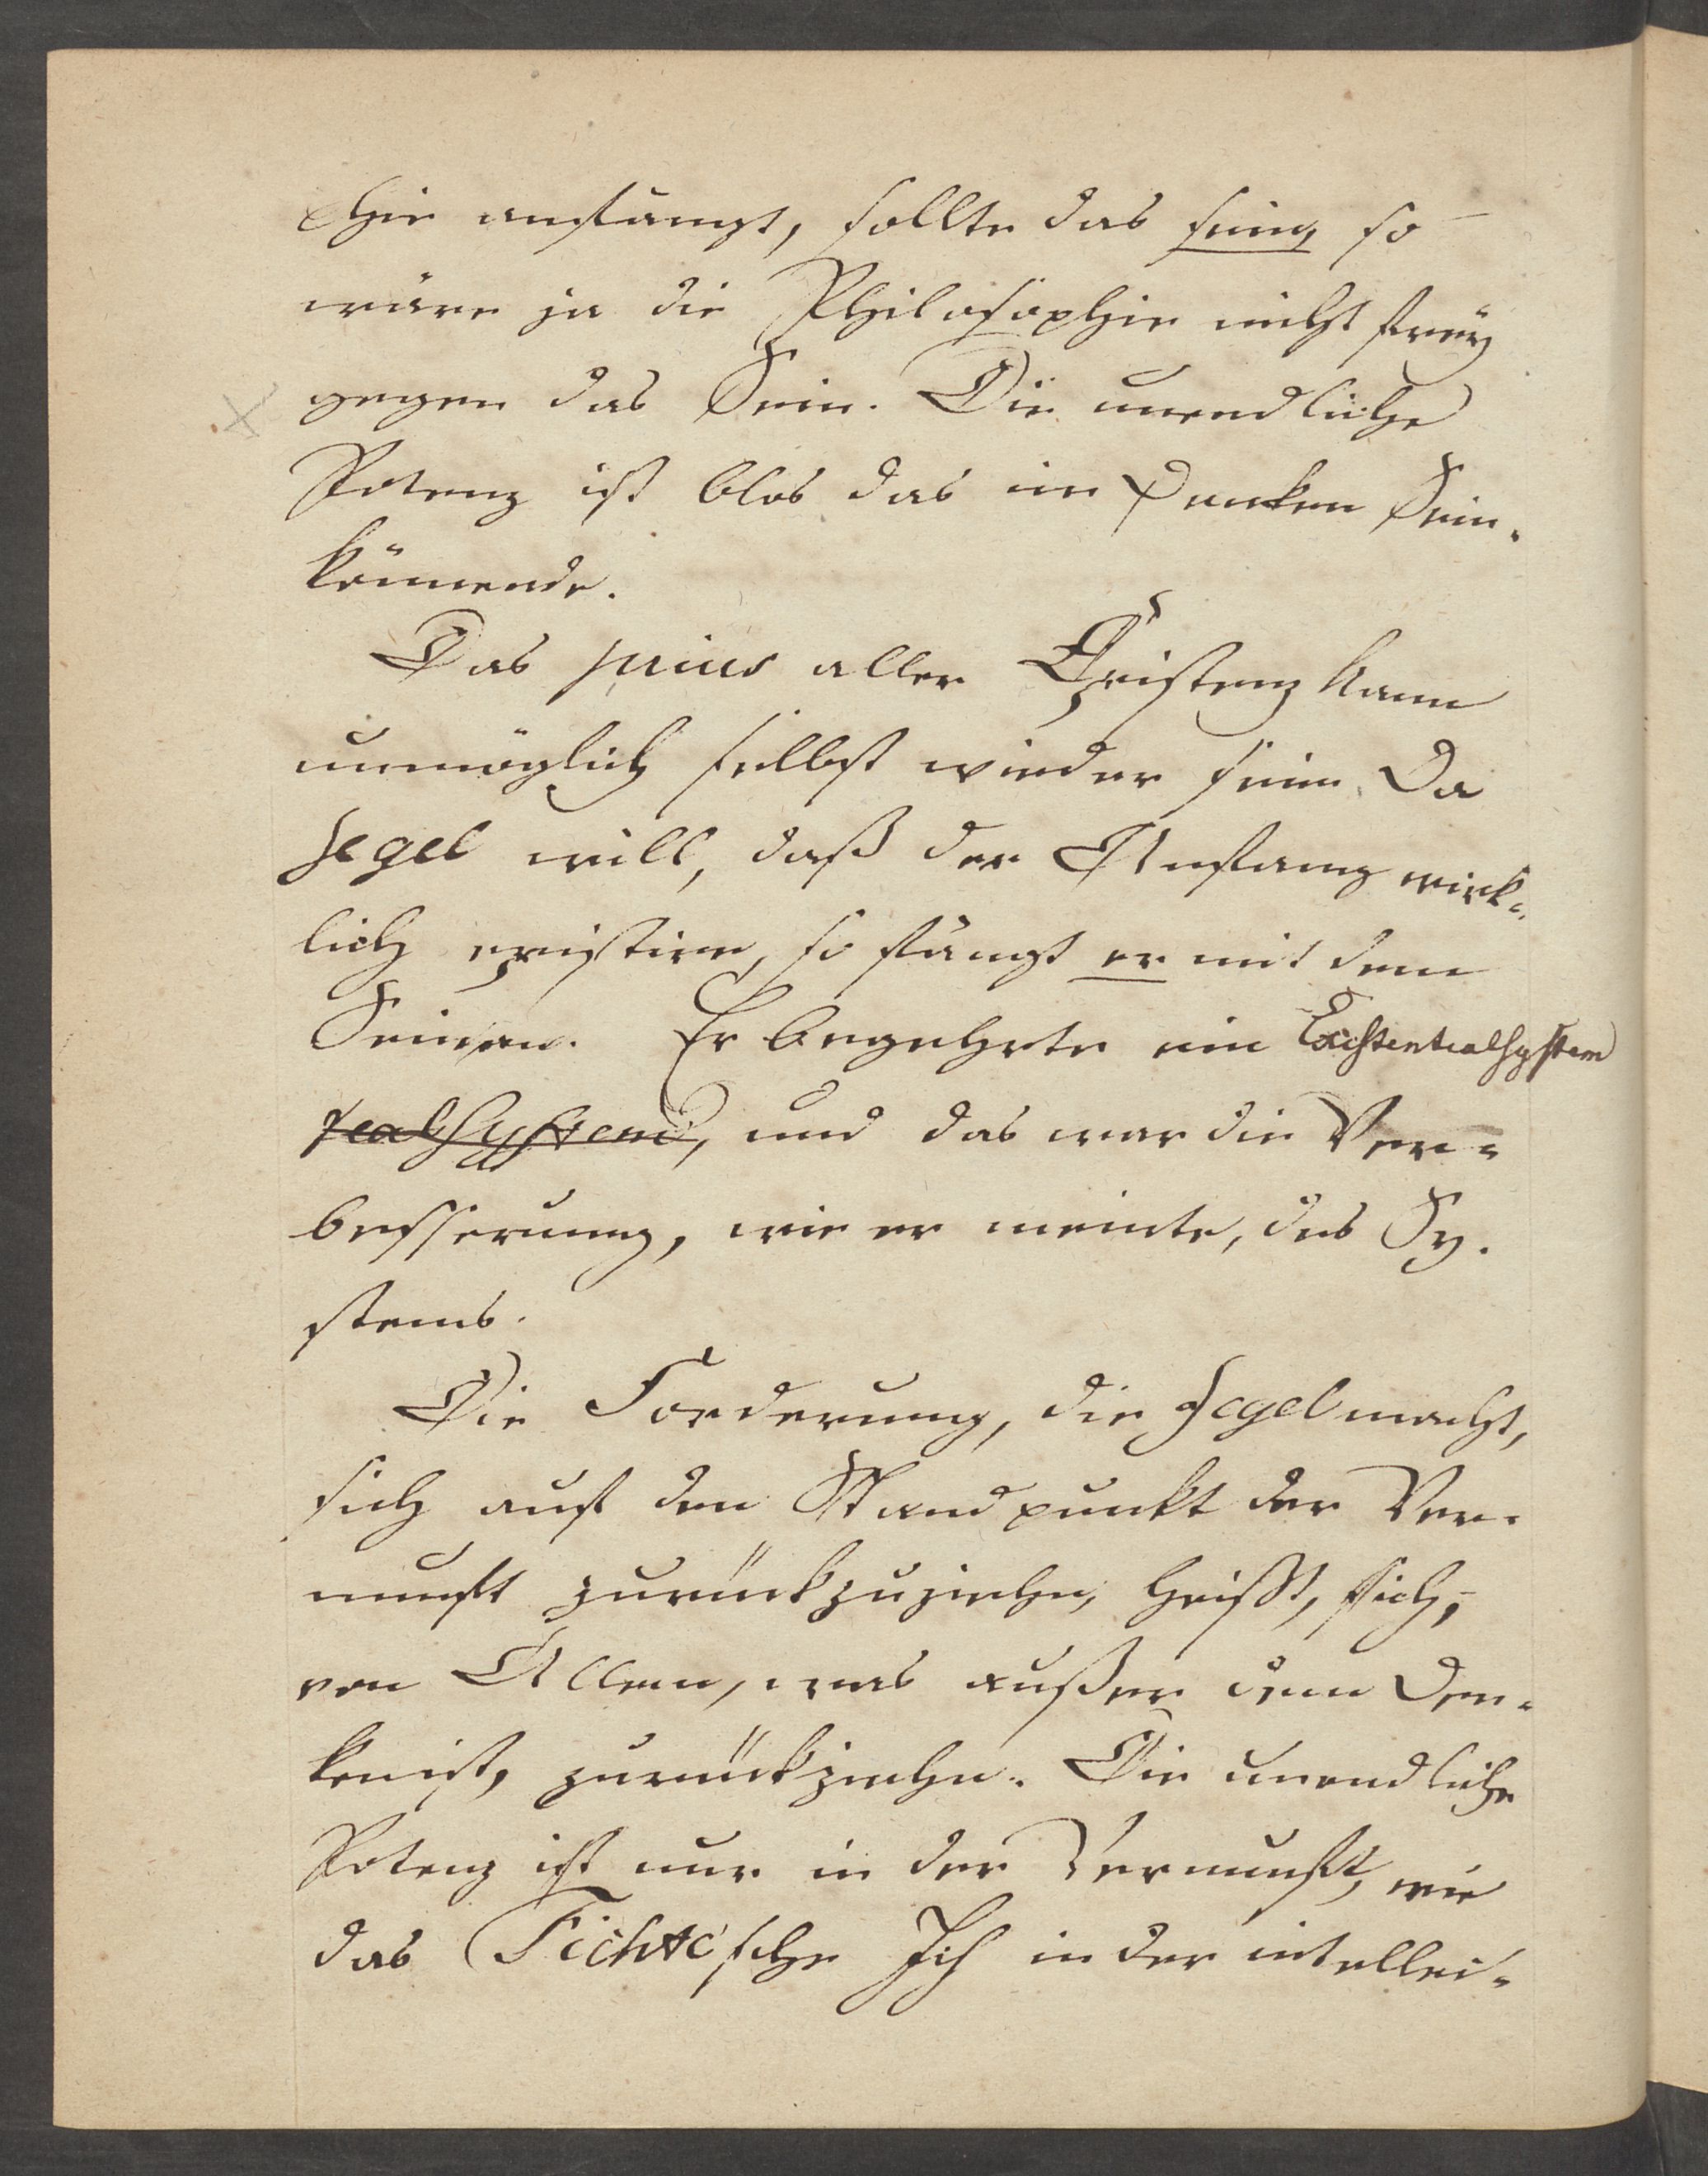 phie anfängt, sollte das sein, so
wäre ja die Philosophie nicht frey
gegen das Sein. Die unendliche
Potenz ist blos das im Denken Sein-
könnende.
Das prius aller Existenz kann
unmöglich selbst wieder sein. Da
Hegel will, daß der Anfang wirk-
lich existire, so fängt er mit dem
Seinan. Er begehrte ein Existentialsystem
realsystem, und das war die Ver-
besserung, wie er meinte, des Sy-
stems.
Die Forderung, die Hegel macht,
sich auf den Standpunkt der Ver-
nunft zurückzuziehn, heißt, sich,
von Allem, was außer dem Den-
ken ist, zurückziehn. Die unendliche
Potenz ist nur in der Vernunft, wie
das Fichte'sche Ich in der intellec-